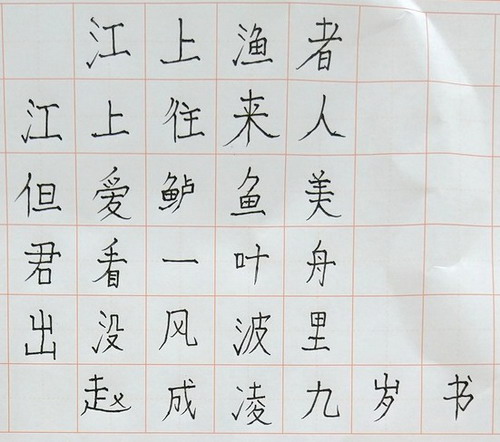 江上渔者
江上住来人
但爱鲈鱼美
君看一叶舟
出没风波里
赵成凌九岁书